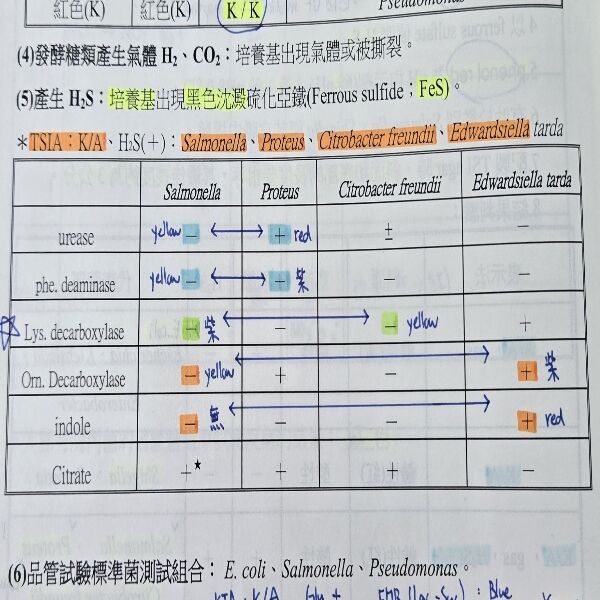 紅色(K) 紅色(K) K / K Pseudomonas
(4)發酵糖類產生氣體 H₂、CO₂：培養基出現氣體或被撕裂。
(5)產生 H₂S：培養基出現黑色沈澱硫化亞鐵(Ferrous sulfide；FeS)。
＊TSIA：K/A、H₂S(＋)：Salmonella、Proteus、Citrobacter freundii、Edwardsiella tarda
Salmonella Proteus Citrobacter freundii Edwardsiella tarda
urease yellow − ↔ + red ± −
phe. deaminase yellow − ↔ + 紫 − −
☆ Lys. decarboxylase − 紫 ↔ − − yellow +
Orn. Decarboxylase − yellow ↔ + − + 紫
indole − 無 ↔ − − + red
Citrate +★ + + −
(6)品管試驗標準菌測試組合： E. coli、Salmonella、Pseudomonas。